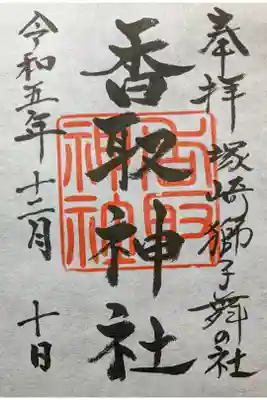 奉拝 塚崎獅子舞の社
香取神社
香取神社
令和五年十二月十日